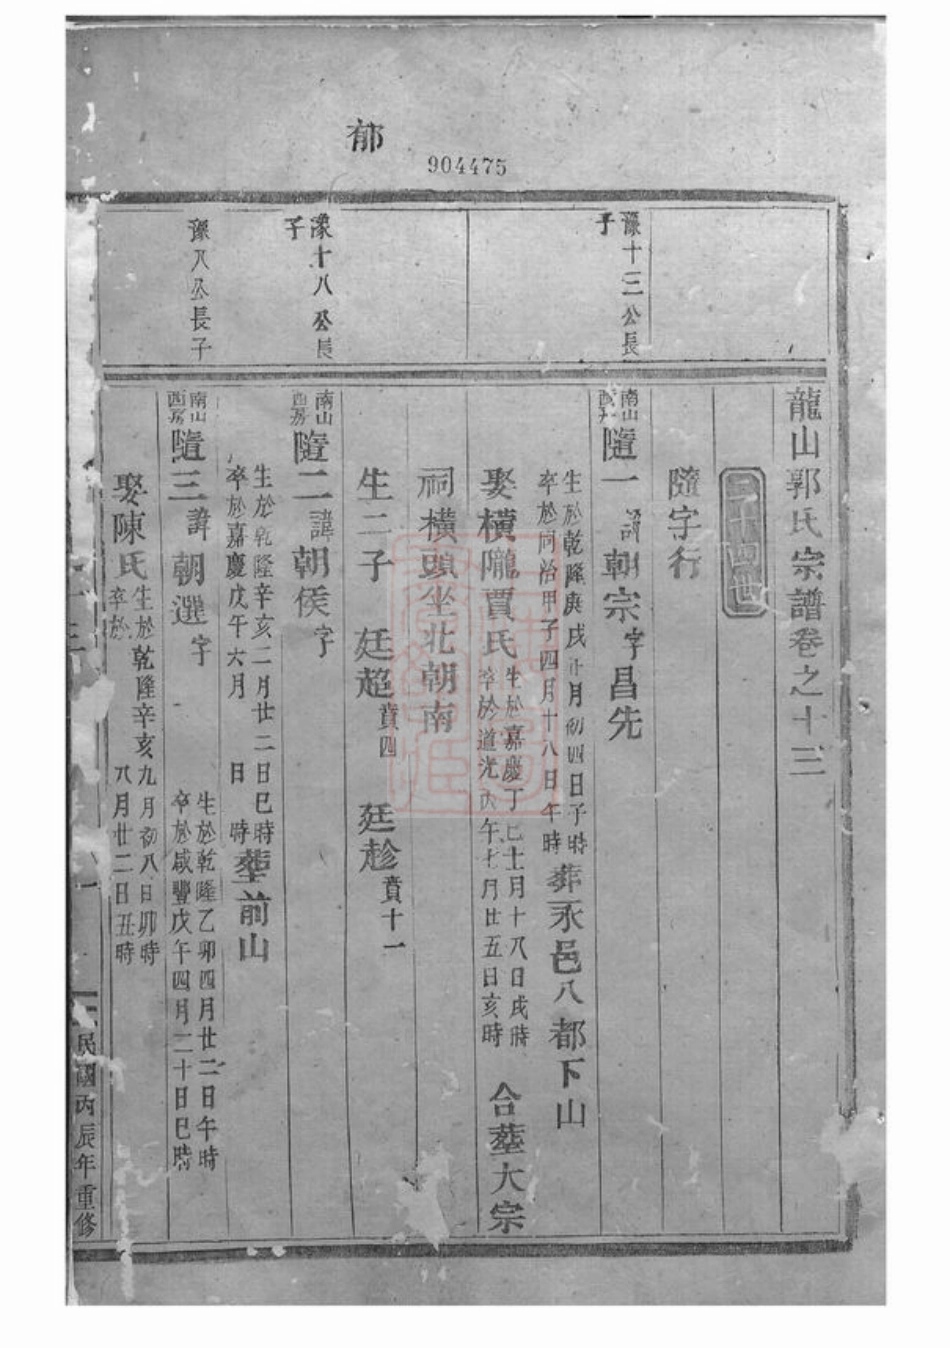 郁
904475
龍山郭氏宗譜卷之十三
二十四世
隨字行
豫十三公長子
南山西房
隨一諱朝宗字昌先
生於乾隆庚戌正月初四日子時
卒於同治甲子四月十八日午時
葬永邑八都下山
娶橫隴賈氏
生於嘉慶丁巳十月十八日戌時
卒於道光丙午七月廿五日亥時
合葬大宗
祠橫頭坐北朝南
生二子 廷超賁四 廷趁賁十一
豫十八公長子
南山西房
隨二諱朝俟字
生於乾隆辛亥二月廿二日巳時
卒於嘉慶戊午六月 日 時
葬前山
豫八公長子
南山西房
隨三諱朝選字
生於乾隆乙卯四月廿二日午時
卒於咸豐戊午四月二十日巳時
娶陳氏
生於乾隆辛亥九月初八日卯時
卒於 八月廿二日丑時
民國丙辰年重修